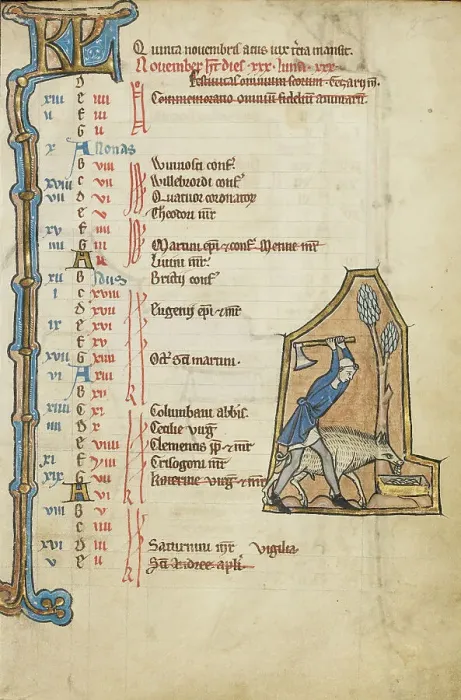 KL Quinta nouembris acus uix tercia mansit.
Nouember ht dies xxx luna xxx
d Festiuitas omnium scorum. Cesarij m.
xiii e iiii Commemoratio omnium fidelium animarum.
ii f iii
g ii
x A Nonas
b viii Winnoci conf.
xviii c vii Willebrordi conf
vii d vi Quatuor coronator
e v Theodori mr
xv f iiii
iiii g iii Martini epi & conf. Menne mr
A ii Liuini mr.
xii b Idus Brictii conf
i c xviii
d xvii Eugenij epi & mr
ix e xvi
f xv
xvii g xiiii Oct sci martini.
vi A xiii
b xii
xiiii c xi Columbani abbis.
iii d x Cecilie uirg
e viiii Clementis pp & mr
xi f viii Crisogoni mr
xix g vii Katerine uirg & mr
A vi
viii b v
c iiii
xvi d iii Saturnini mr vigilia
v e ii Sci Andree apli